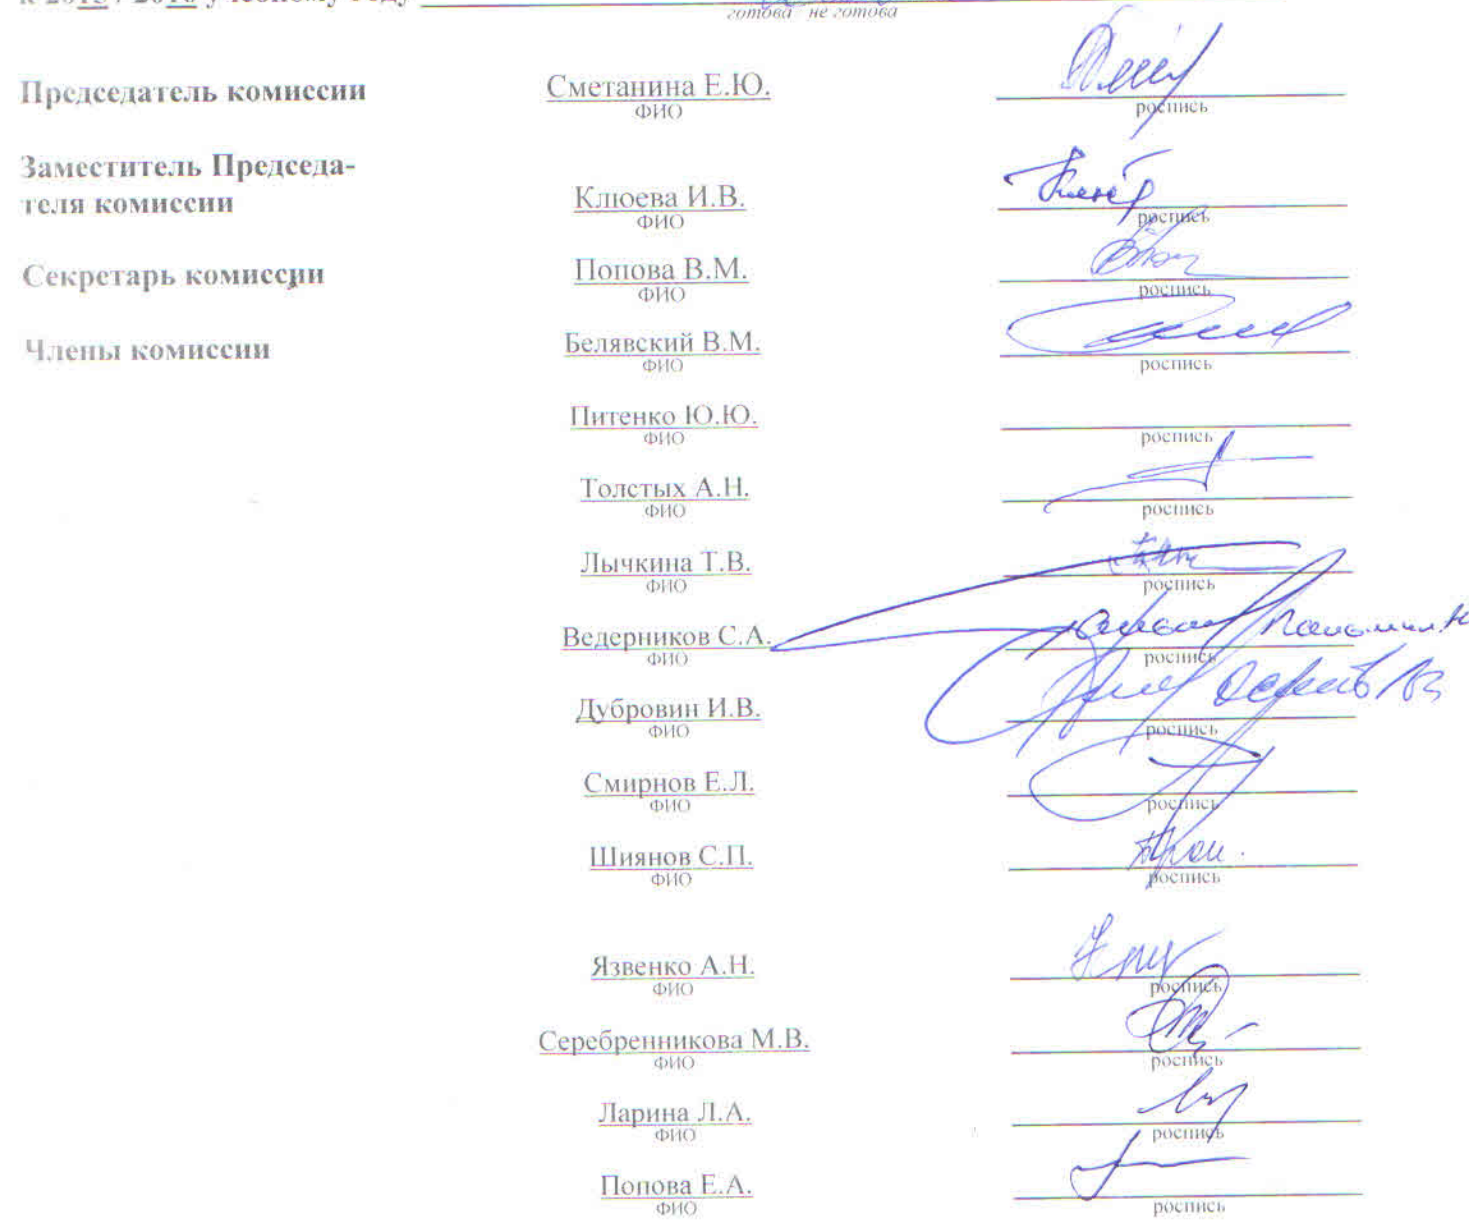 к 2015 / 2016 учебному году
готова - не готова
Председатель комиссии Сметанина Е.Ю.
ФИО роспись
Заместитель Председа-
теля комиссии Клюева И.В.
ФИО роспись
Секретарь комиссии Попова В.М.
ФИО роспись
Члены комиссии Белявский В.М.
ФИО роспись
Питенко Ю.Ю.
ФИО роспись
Толстых А.Н.
ФИО роспись
Лычкина Т.В.
ФИО роспись
Ведерников С.А.
ФИО роспись
Дубровин И.В.
ФИО роспись
Смирнов Е.Л.
ФИО роспись
Шиянов С.П.
ФИО роспись
Язвенко А.Н.
ФИО роспись
Серебренникова М.В.
ФИО роспись
Ларина Л.А.
ФИО роспись
Попова Е.А.
ФИО роспись